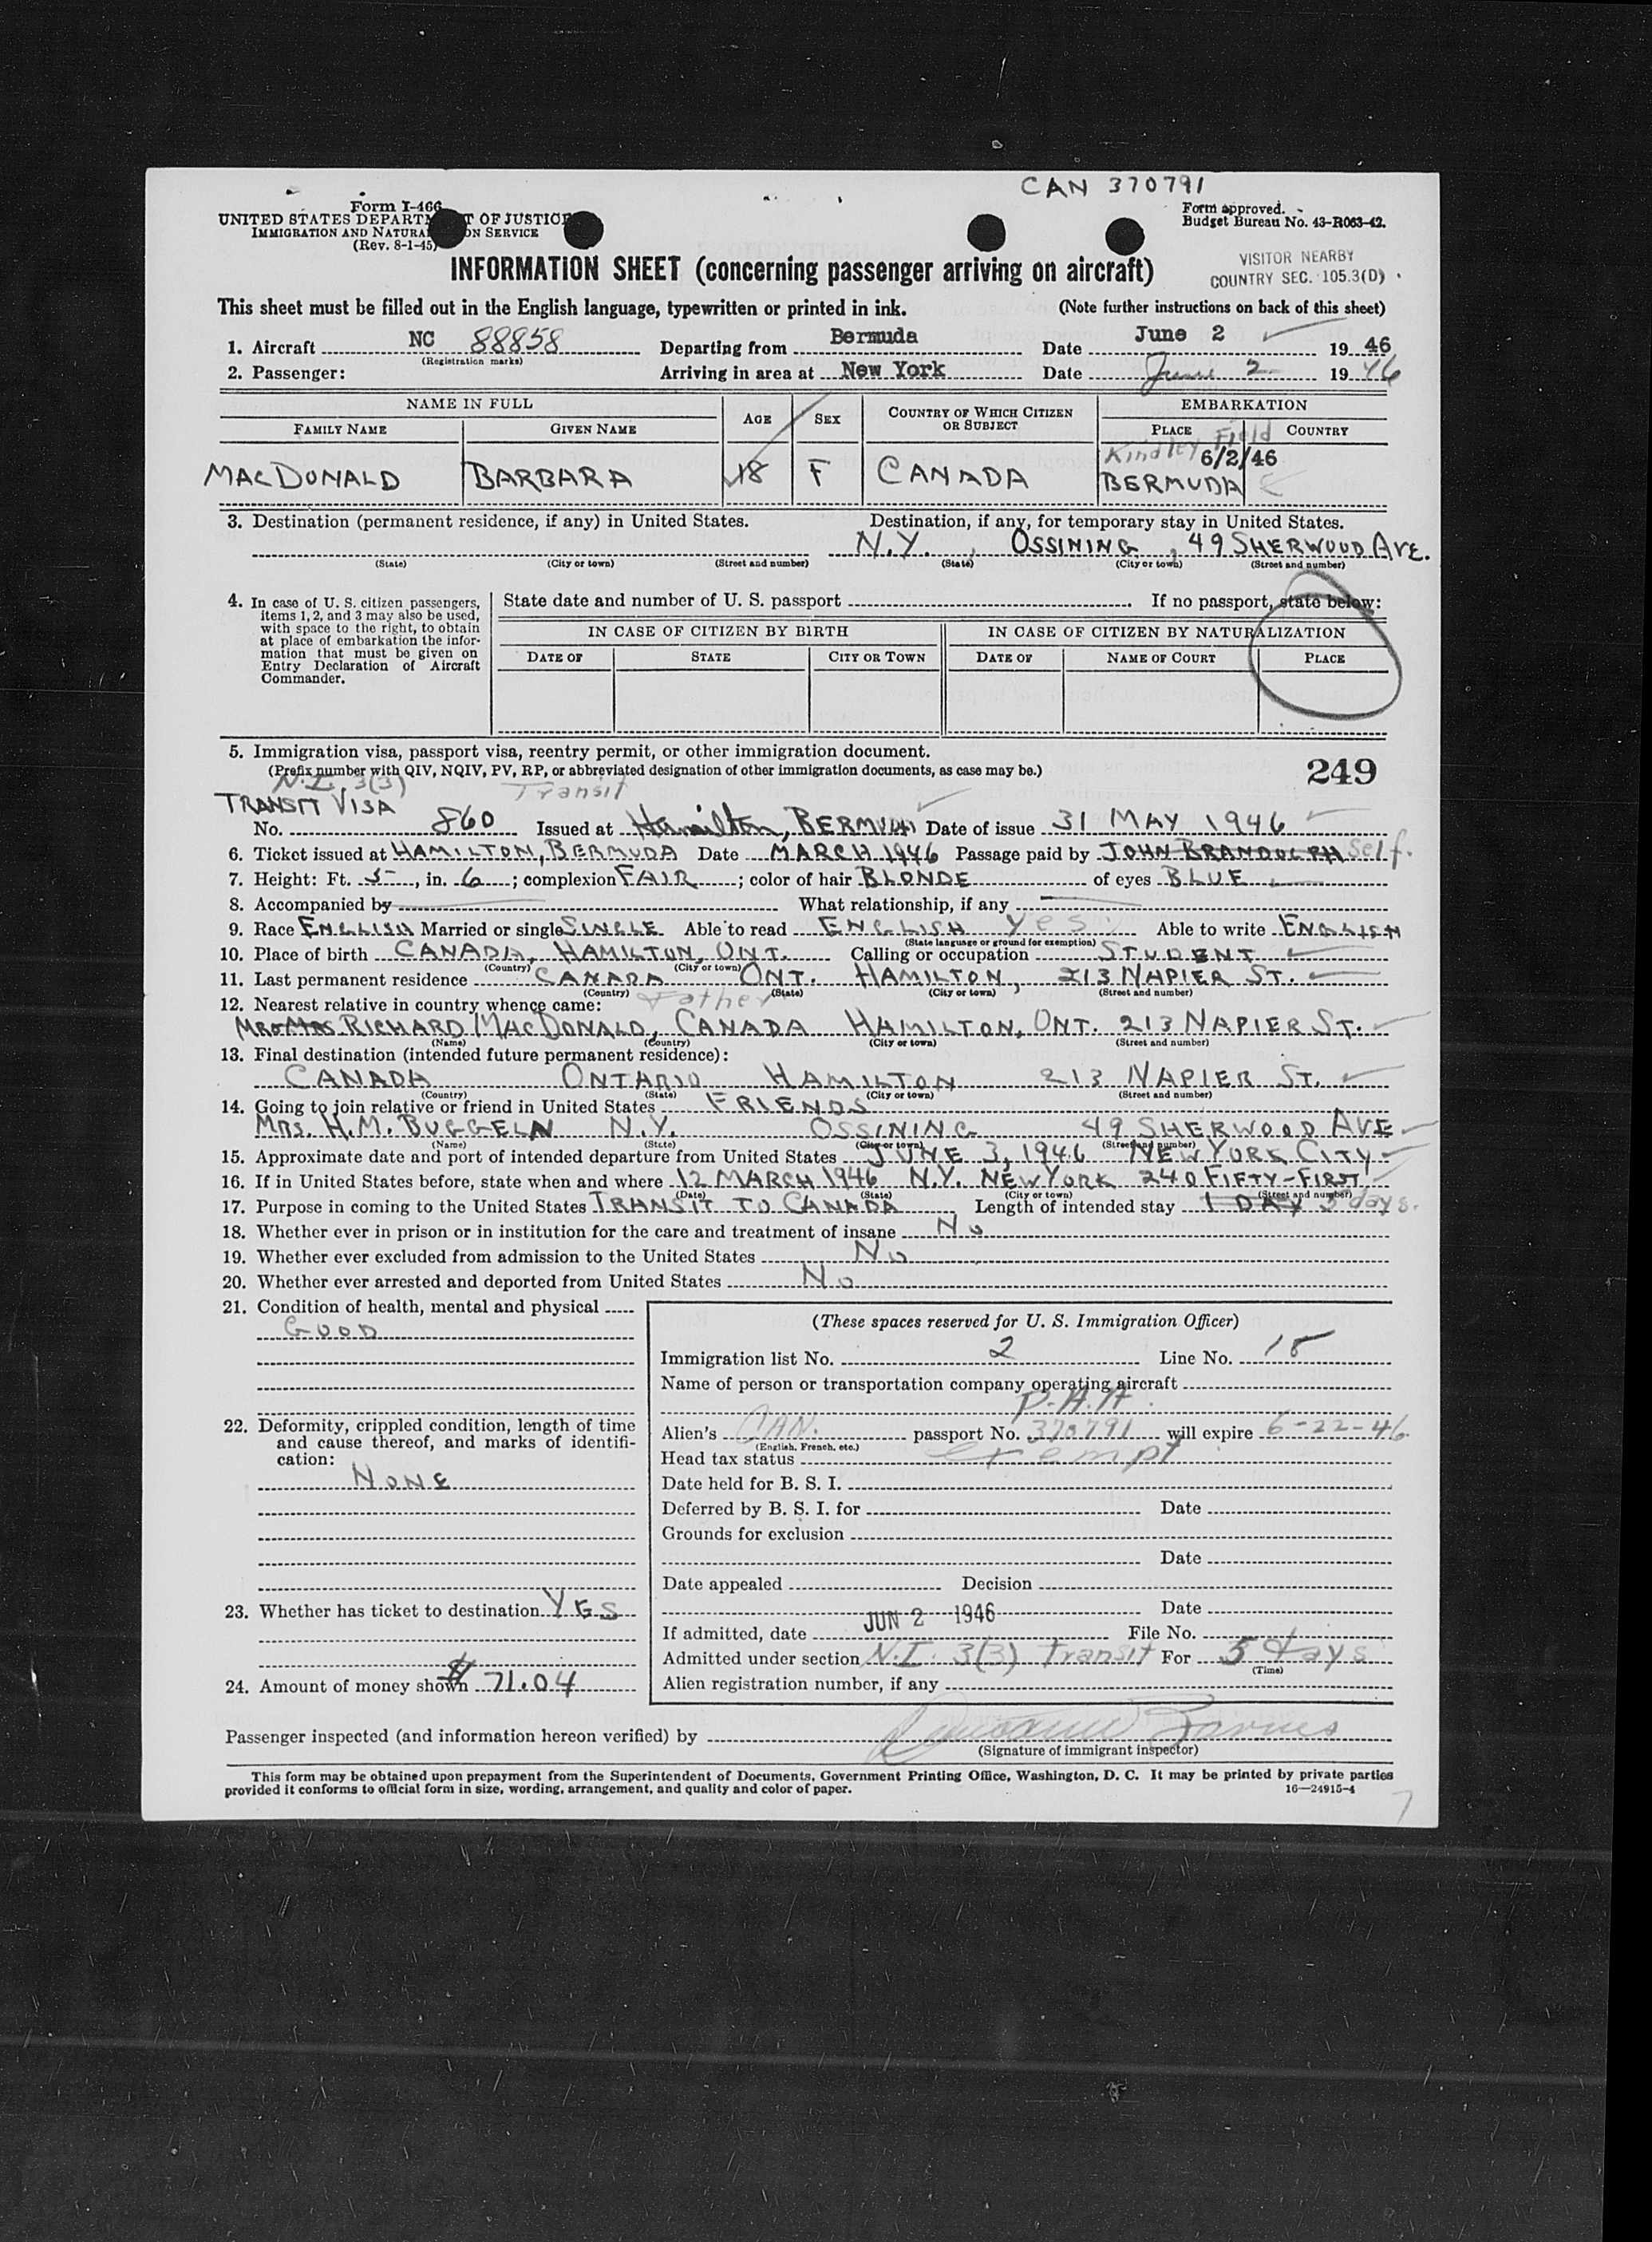 CAN 370791
Form I-466
UNITED STATES DEPARTM T OF JUSTICE
IMMIGRATION AND NATURA ON SERVICE
(Rev. 8-1-45)
Form approved.
Budget Bureau No. 43-R063-42.
VISITOR NEARBY
COUNTRY SEC. 105.3(D)
INFORMATION SHEET (concerning passenger arriving on aircraft)
This sheet must be filled out in the English language, typewritten or printed in ink. (Note further instructions on back of this sheet)
1. Aircraft NC 88858 Departing from Bermuda Date June 2 1946
(Registration marks)
2. Passenger: Arriving in area at New York Date June 2 1946
NAME IN FULL AGE SEX COUNTRY OF WHICH CITIZEN OR SUBJECT EMBARKATION
FAMILY NAME GIVEN NAME PLACE COUNTRY
Kindley Field
6/2/46
MACDONALD BARBARA 18 F CANADA BERMUDA
3. Destination (permanent residence, if any) in United States. Destination, if any, for temporary stay in United States.
N.Y., OSSINING, 49 SHERWOOD AVE.
(State) (City or town) (Street and number) (State) (City or town) (Street and number)
4. In case of U. S. citizen passengers, items 1, 2, and 3 may also be used, with space to the right, to obtain at place of embarkation the information that must be given on Entry Declaration of Aircraft Commander.
State date and number of U. S. passport If no passport, state below:
IN CASE OF CITIZEN BY BIRTH IN CASE OF CITIZEN BY NATURALIZATION
DATE OF STATE CITY OR TOWN DATE OF NAME OF COURT PLACE
5. Immigration visa, passport visa, reentry permit, or other immigration document.
(Prefix number with QIV, NQIV, PV, RP, or abbreviated designation of other immigration documents, as case may be.) 249
N.I. 3(3) Transit
TRANSIT VISA
No. 860 Issued at Hamilton, BERMUDA Date of issue 31 MAY 1946
6. Ticket issued at HAMILTON, BERMUDA Date MARCH 1946 Passage paid by JOHN BRANDOLPH Self.
7. Height: Ft. 5, in. 6; complexion FAIR; color of hair BLONDE of eyes BLUE
8. Accompanied by What relationship, if any
9. Race ENGLISH Married or single SINGLE Able to read ENGLISH Yes Able to write ENGLISH
(State language or ground for exemption)
10. Place of birth CANADA, HAMILTON, ONT. Calling or occupation STUDENT
(Country) (City or town)
11. Last permanent residence CANADA ONT. HAMILTON, 213 NAPIER ST.
(Country) (State) (City or town) (Street and number)
12. Nearest relative in country whence came: Father
MR & MRS RICHARD MACDONALD, CANADA HAMILTON, ONT. 213 NAPIER ST.
(Name) (Country) (City or town) (Street and number)
13. Final destination (intended future permanent residence):
CANADA ONTARIO HAMILTON 213 NAPIER ST.
(Country) (State) (City or town) (Street and number)
14. Going to join relative or friend in United States FRIENDS
MRS. H.M. BUGGELN N.Y. OSSINING 49 SHERWOOD AVE
(Name) (State) (City or town) (Street and number)
15. Approximate date and port of intended departure from United States JUNE 3, 1946 NEW YORK CITY
16. If in United States before, state when and where 12 MARCH 1946 N.Y. NEW YORK 240 FIFTY-FIRST
(Date) (State) (City or town) (Street and number)
17. Purpose in coming to the United States TRANSIT TO CANADA Length of intended stay 1 DAY 5 days.
18. Whether ever in prison or in institution for the care and treatment of insane NO
19. Whether ever excluded from admission to the United States NO
20. Whether ever arrested and deported from United States NO
21. Condition of health, mental and physical
GOOD
22. Deformity, crippled condition, length of time and cause thereof, and marks of identification:
NONE
23. Whether has ticket to destination YES
24. Amount of money shown $71.04
(These spaces reserved for U. S. Immigration Officer)
Immigration list No. 2 Line No. 18
Name of person or transportation company operating aircraft
P.A.A.
Alien's CAN. passport No. 370791 will expire 6-22-46
(English, French, etc.)
Head tax status exempt
Date held for B. S. I.
Deferred by B. S. I. for Date
Grounds for exclusion
Date
Date appealed Decision
Date
If admitted, date JUN 2 1946 File No.
Admitted under section N.I. 3(3) Transit For 5 days
(Time)
Alien registration number, if any
Passenger inspected (and information hereon verified) by
(Signature of immigrant inspector)
This form may be obtained upon prepayment from the Superintendent of Documents, Government Printing Office, Washington, D. C. It may be printed by private parties
provided it conforms to official form in size, wording, arrangement, and quality and color of paper. 16—24915-4
7